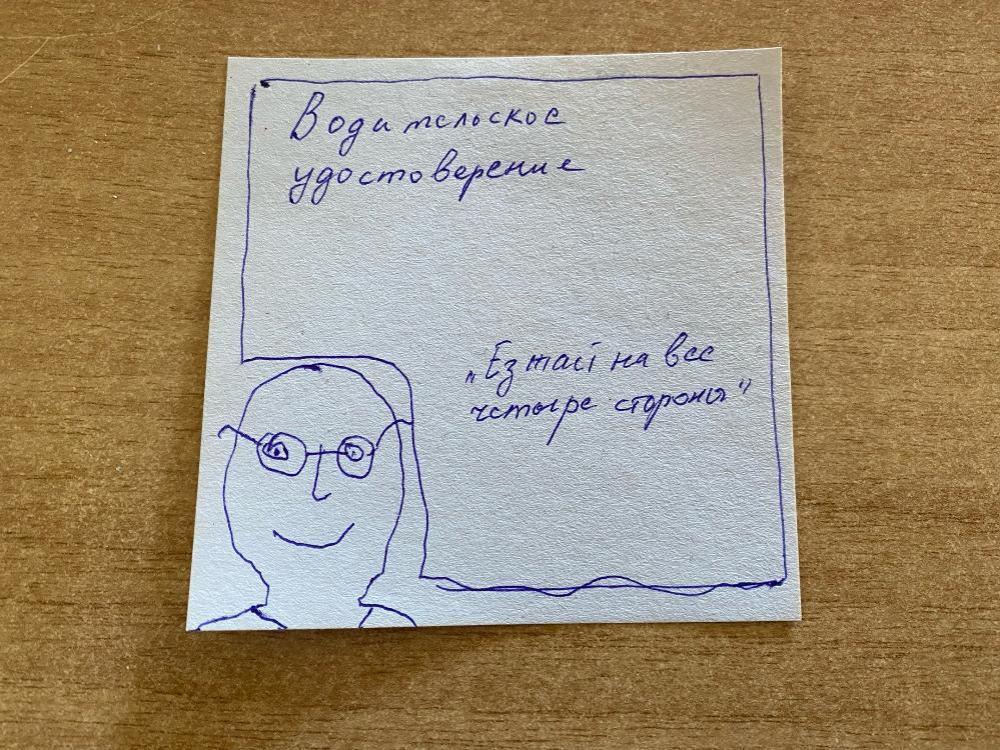 Водительское
удостоверение
„Езжай на все
четыре стороны"